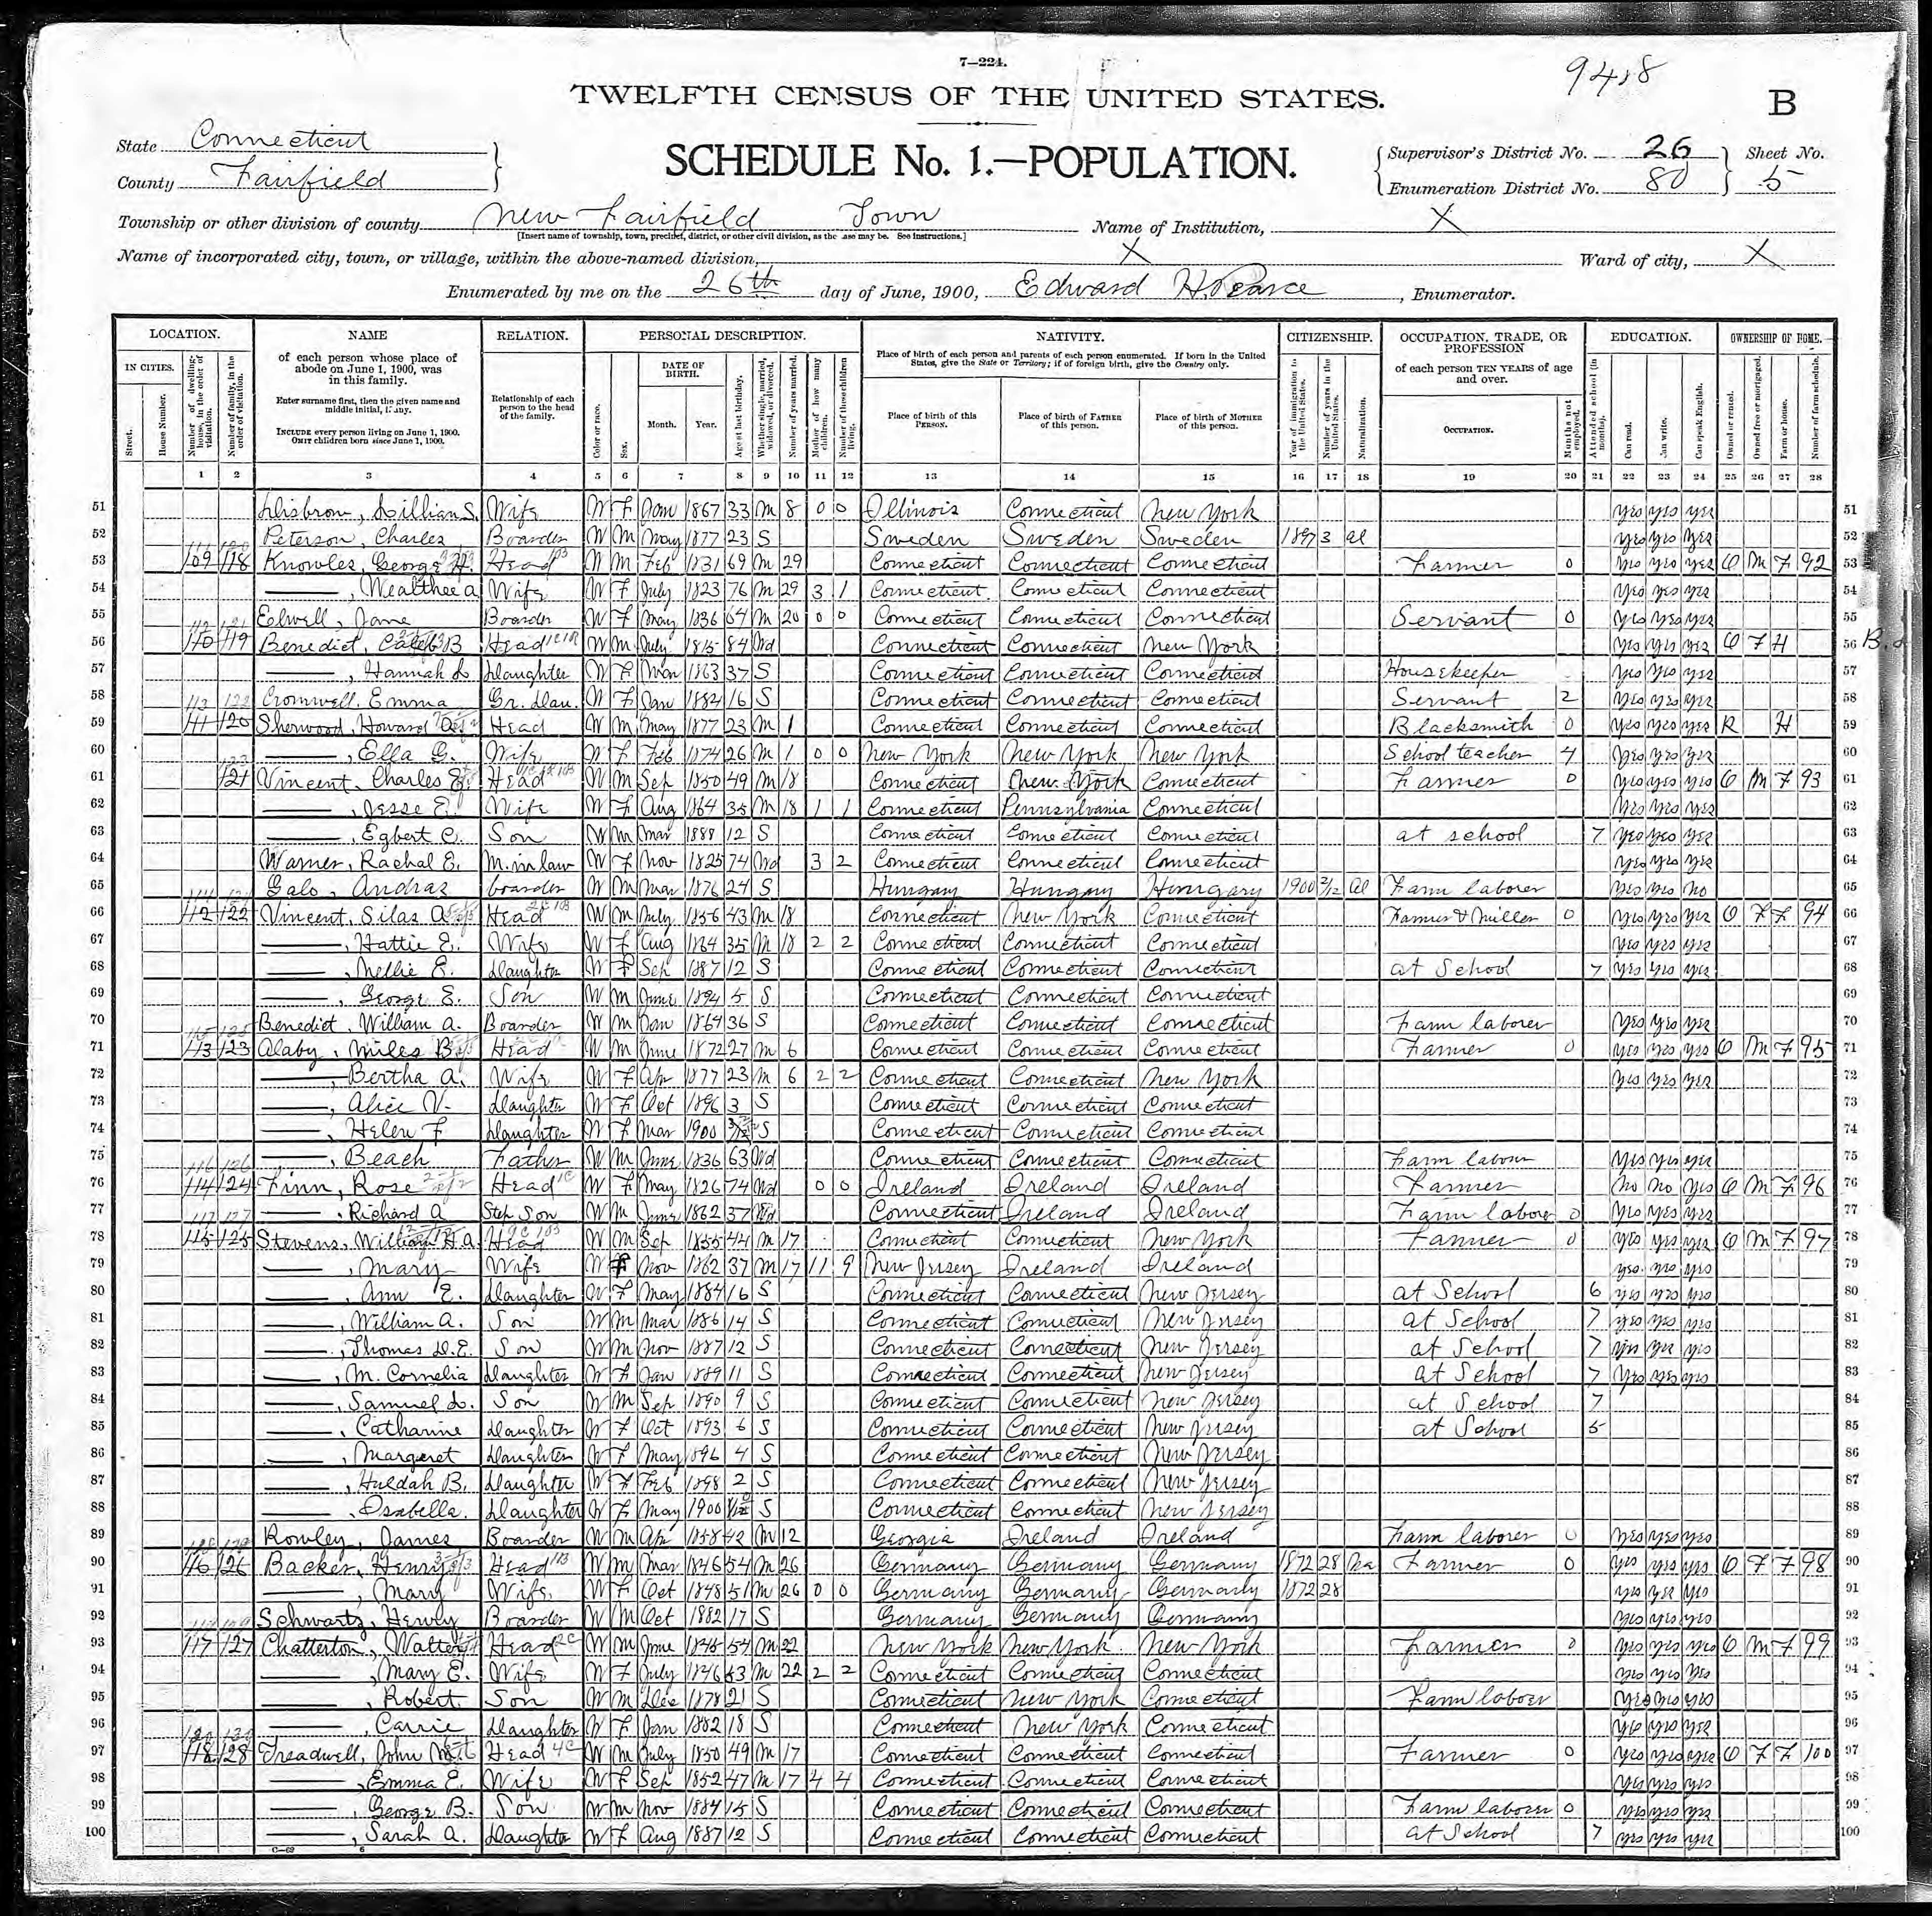 7—224.
9418
TWELFTH CENSUS OF THE UNITED STATES.
B
State Connecticut
County Fairfield
SCHEDULE No. 1.—POPULATION.
Supervisor's District No. 26 Sheet No.
Enumeration District No. 80 5
Township or other division of county New Fairfield Town Name of Institution, X
[Insert name of township, town, precinct, district, or other civil division, as the case may be. See instructions.]
Name of incorporated city, town, or village, within the above-named division, X Ward of city, X
Enumerated by me on the 26th day of June, 1900, Edward H. Pearce, Enumerator.
LOCATION. NAME RELATION. PERSONAL DESCRIPTION. NATIVITY. CITIZENSHIP. OCCUPATION, TRADE, OR PROFESSION EDUCATION. OWNERSHIP OF HOME.
IN CITIES. Street. House Number. Number of dwelling-house, in the order of visitation. Number of family, in the order of visitation.
of each person whose place of abode on June 1, 1900, was in this family.
Enter surname first, then the given name and middle initial, if any.
INCLUDE every person living on June 1, 1900. OMIT children born since June 1, 1900.
Relationship of each person to the head of the family.
Color or race. Sex. DATE OF BIRTH. Month. Year. Age at last birthday. Whether single, married, widowed, or divorced. Number of years married. Mother of how many children. Number of these children living.
Place of birth of each person and parents of each person enumerated. If born in the United States, give the State or Territory; if of foreign birth, give the Country only.
Place of birth of this PERSON. Place of birth of FATHER of this person. Place of birth of MOTHER of this person.
Year of immigration to the United States. Number of years in the United States. Naturalization.
of each person TEN YEARS of age and over.
OCCUPATION. Months not employed.
Attended school (in months). Can read. Can write. Can speak English.
Owned or rented. Owned free or mortgaged. Farm or house. Number of farm schedule.
1 2 3 4 5 6 7 8 9 10 11 12 13 14 15 16 17 18 19 20 21 22 23 24 25 26 27 28
51 Disbrow, Lillian S. Wife W F Jan 1867 33 M 8 0 0 Illinois Connecticut New York yes yes yes 51
52 Peterson, Charles Boarder W M May 1877 23 S Sweden Sweden Sweden 1897 3 al yes yes yes 52
53 109 118 Knowles, George H. Head W M Feb 1831 69 M 29 Connecticut Connecticut Connecticut Farmer 0 yes yes yes O M F 92 53
54 —, Wealthee A Wife W F July 1823 76 M 29 3 1 Connecticut Connecticut Connecticut yes yes yes 54
55 Elwell, Jane Boarder W F May 1836 64 M 20 0 0 Connecticut Connecticut Connecticut Servant 0 yes yes yes 55
56 110 119 Benedict, Caleb B Head W M July 1815 84 Wd Connecticut Connecticut New York yes yes yes O F H 56
57 —, Hannah L Daughter W F Mar 1863 37 S Connecticut Connecticut Connecticut Housekeeper yes yes yes 57
58 Cromwell, Emma Gr. Dau. W F Jan 1884 16 S Connecticut Connecticut Connecticut Servant 2 yes yes yes 58
59 111 120 Sherwood, Howard Head W M May 1877 23 M 1 Connecticut Connecticut Connecticut Blacksmith 0 yes yes yes R H 59
60 —, Ella G. Wife W F Feb 1874 26 M 1 0 0 New York New York New York School teacher 4 yes yes yes 60
61 121 Vincent, Charles E. Head W M Sep 1850 49 M 18 Connecticut New York Connecticut Farmer 0 yes yes yes O M F 93 61
62 —, Jesse E. Wife W F Aug 1864 35 M 18 1 1 Connecticut Pennsylvania Connecticut yes yes yes 62
63 —, Egbert C. Son W M Mar 1888 12 S Connecticut Connecticut Connecticut at school 7 yes yes yes 63
64 Warner, Rachal E. M. in law W F Nov 1825 74 Wd 3 2 Connecticut Connecticut Connecticut yes yes yes 64
65 Galo, Andras boarder W M Mar 1876 24 S Hungary Hungary Hungary 1900 2/12 al Farm laborer yes yes no 65
66 112 122 Vincent, Silas A. Head W M July 1856 43 M 18 Connecticut New York Connecticut Farmer & Miller 0 yes yes yes O F F 94 66
67 —, Hattie E. Wife W F Aug 1864 35 M 18 2 2 Connecticut Connecticut Connecticut yes yes yes 67
68 —, Nellie E. Daughter W F Sep 1887 12 S Connecticut Connecticut Connecticut at School 7 yes yes yes 68
69 —, George E. Son W M June 1894 5 S Connecticut Connecticut Connecticut 69
70 Benedict, William A. Boarder W M Jan 1864 36 S Connecticut Connecticut Connecticut Farm laborer yes yes yes 70
71 113 123 Alaby, Miles B. Head W M June 1872 27 M 6 Connecticut Connecticut Connecticut Farmer 0 yes yes yes O M F 95 71
72 —, Bertha A. Wife W F Apr 1877 23 M 6 2 2 Connecticut Connecticut New York yes yes yes 72
73 —, Alice V. Daughter W F Oct 1896 3 S Connecticut Connecticut Connecticut 73
74 —, Helen F Daughter W F Mar 1900 S Connecticut Connecticut Connecticut 74
75 —, Beach Father W M June 1836 63 Wd Connecticut Connecticut Connecticut Farm labour yes yes yes 75
76 114 124 Finn, Rose Head W F May 1826 74 Wd 0 0 Ireland Ireland Ireland Farmer no no yes O M F 96 76
77 —, Richard A Step Son W M June 1862 37 Wd Connecticut Ireland Ireland Farm labore 0 yes yes yes 77
78 115 125 Stevens, William H A. Head W M Sep 1855 44 M 17 Connecticut Connecticut New York Farmer 0 yes yes yes O M F 97 78
79 —, Mary Wife W F Nov 1862 37 M 17 11 9 New Jersey Ireland Ireland yes yes yes 79
80 —, Ann E. Daughter W F May 1884 16 S Connecticut Connecticut New Jersey at School 6 yes yes yes 80
81 —, William A. Son W M Mar 1886 14 S Connecticut Connecticut New Jersey at School 7 yes yes yes 81
82 —, Thomas D. E. Son W M Nov 1887 12 S Connecticut Connecticut New Jersey at School 7 yes yes yes 82
83 —, M. Cornelia Daughter W F Jan 1889 11 S Connecticut Connecticut New Jersey at School 7 yes yes yes 83
84 —, Samuel L. Son W M Sep 1890 9 S Connecticut Connecticut New Jersey at School 7 84
85 —, Catharine Daughter W F Oct 1893 6 S Connecticut Connecticut New Jersey at School 5 85
86 —, Margaret Daughter W F May 1896 4 S Connecticut Connecticut New Jersey 86
87 —, Huldah B. Daughter W F Feb 1898 2 S Connecticut Connecticut New Jersey 87
88 —, Isabella. Daughter W F May 1900 S Connecticut Connecticut New Jersey 88
89 Rowley, James Boarder W M Apr 1858 42 M 12 Georgia Ireland Ireland Farm laborer 0 yes yes yes 89
90 116 126 Backer, Henry Head W M Mar 1846 54 M 26 Germany Germany Germany 1872 28 Na Farmer 0 yes yes yes O F F 98 90
91 —, Mary Wife W F Oct 1848 51 M 26 0 0 Germany Germany Germany 1872 28 yes yes yes 91
92 Schwartz, Henry Boarder W M Oct 1882 17 S Germany Germany Germany yes yes yes 92
93 117 127 Chatterton, Walter Head W M June 1845 54 M 22 New York New York New York Farmer 0 yes yes yes O M F 99 93
94 —, Mary E. Wife W F July 1846 53 M 22 2 2 Connecticut Connecticut Connecticut yes yes yes 94
95 —, Robert. Son W M Dec 1878 21 S Connecticut New York Connecticut Farm laborer yes yes yes 95
96 —, Carrie Daughter W F Jan 1882 18 S Connecticut New York Connecticut yes yes yes 96
97 118 128 Treadwell, John M. Head W M July 1850 49 M 17 Connecticut Connecticut Connecticut Farmer 0 yes yes yes O F F 100 97
98 —, Emma E. Wife W F Sep 1852 47 M 17 4 4 Connecticut Connecticut Connecticut yes yes yes 98
99 —, George B. Son W M Nov 1884 15 S Connecticut Connecticut Connecticut Farm laborer 0 yes yes yes 99
100 —, Sarah A. Daughter W F Aug 1887 12 S Connecticut Connecticut Connecticut at School 7 yes yes yes 100